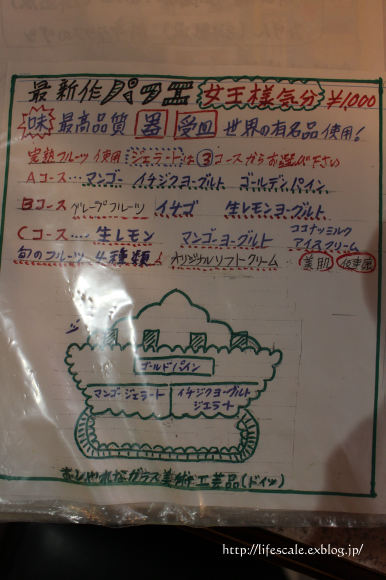 最新作パフェ 女王様気分 ¥1,000
味 最高品質 器 受皿 世界の有名品使用!
完熟フルーツ使用 ジェラートは③コースからお選び下さい
Aコース… マンゴー イチジクヨーグルト ゴールデンパイン、
Bコース グレープフルーツ イチゴ 生レモンヨーグルト
Cコース…. 生レモン マンゴーヨーグルト ココナッツミルクアイスクリーム
旬のフルーツ 4種類 オリジナルソフトクリーム 美肌
ゴールドパイン
マンゴージェラート イチジクヨーグルト
ジェラート
おしゃれなガラス美術工芸品(ドイツ)
http://lifescale.exblog.jp/